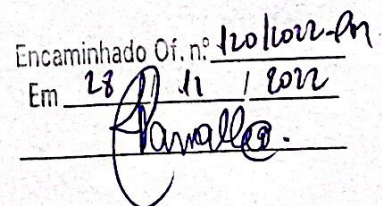 Encaminhado Of. n.º 120/2022-
Em 28 / 11 / 2022